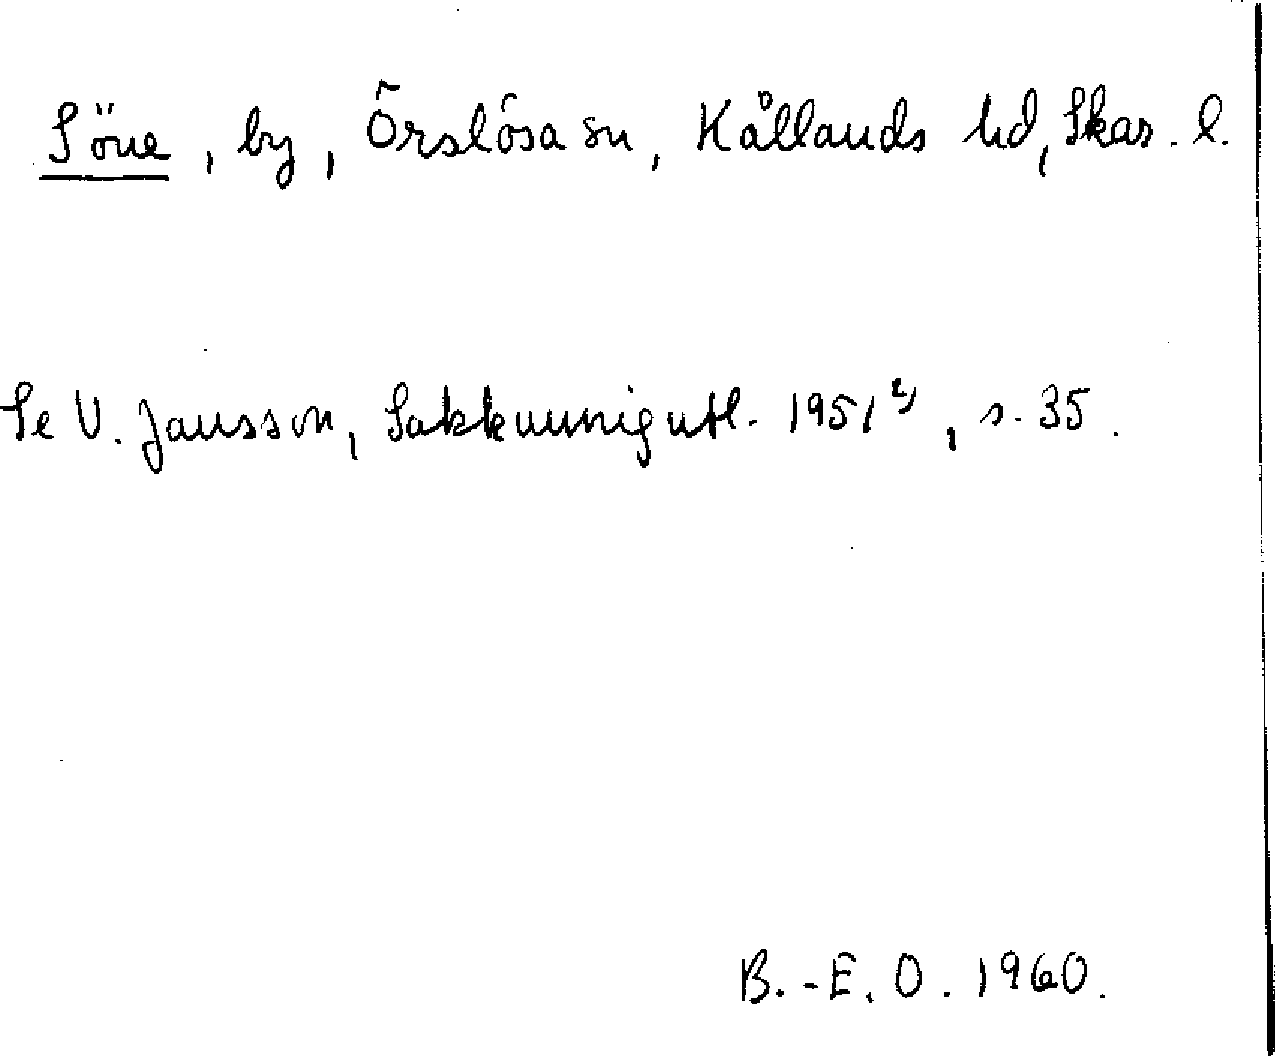 Söne, by, Örslösa sn, Kållands hd, Skar. l.
Se V. Jansson, Sakkunnigutl. 1951²⁾, s. 35.
B.-E. O. 1960.